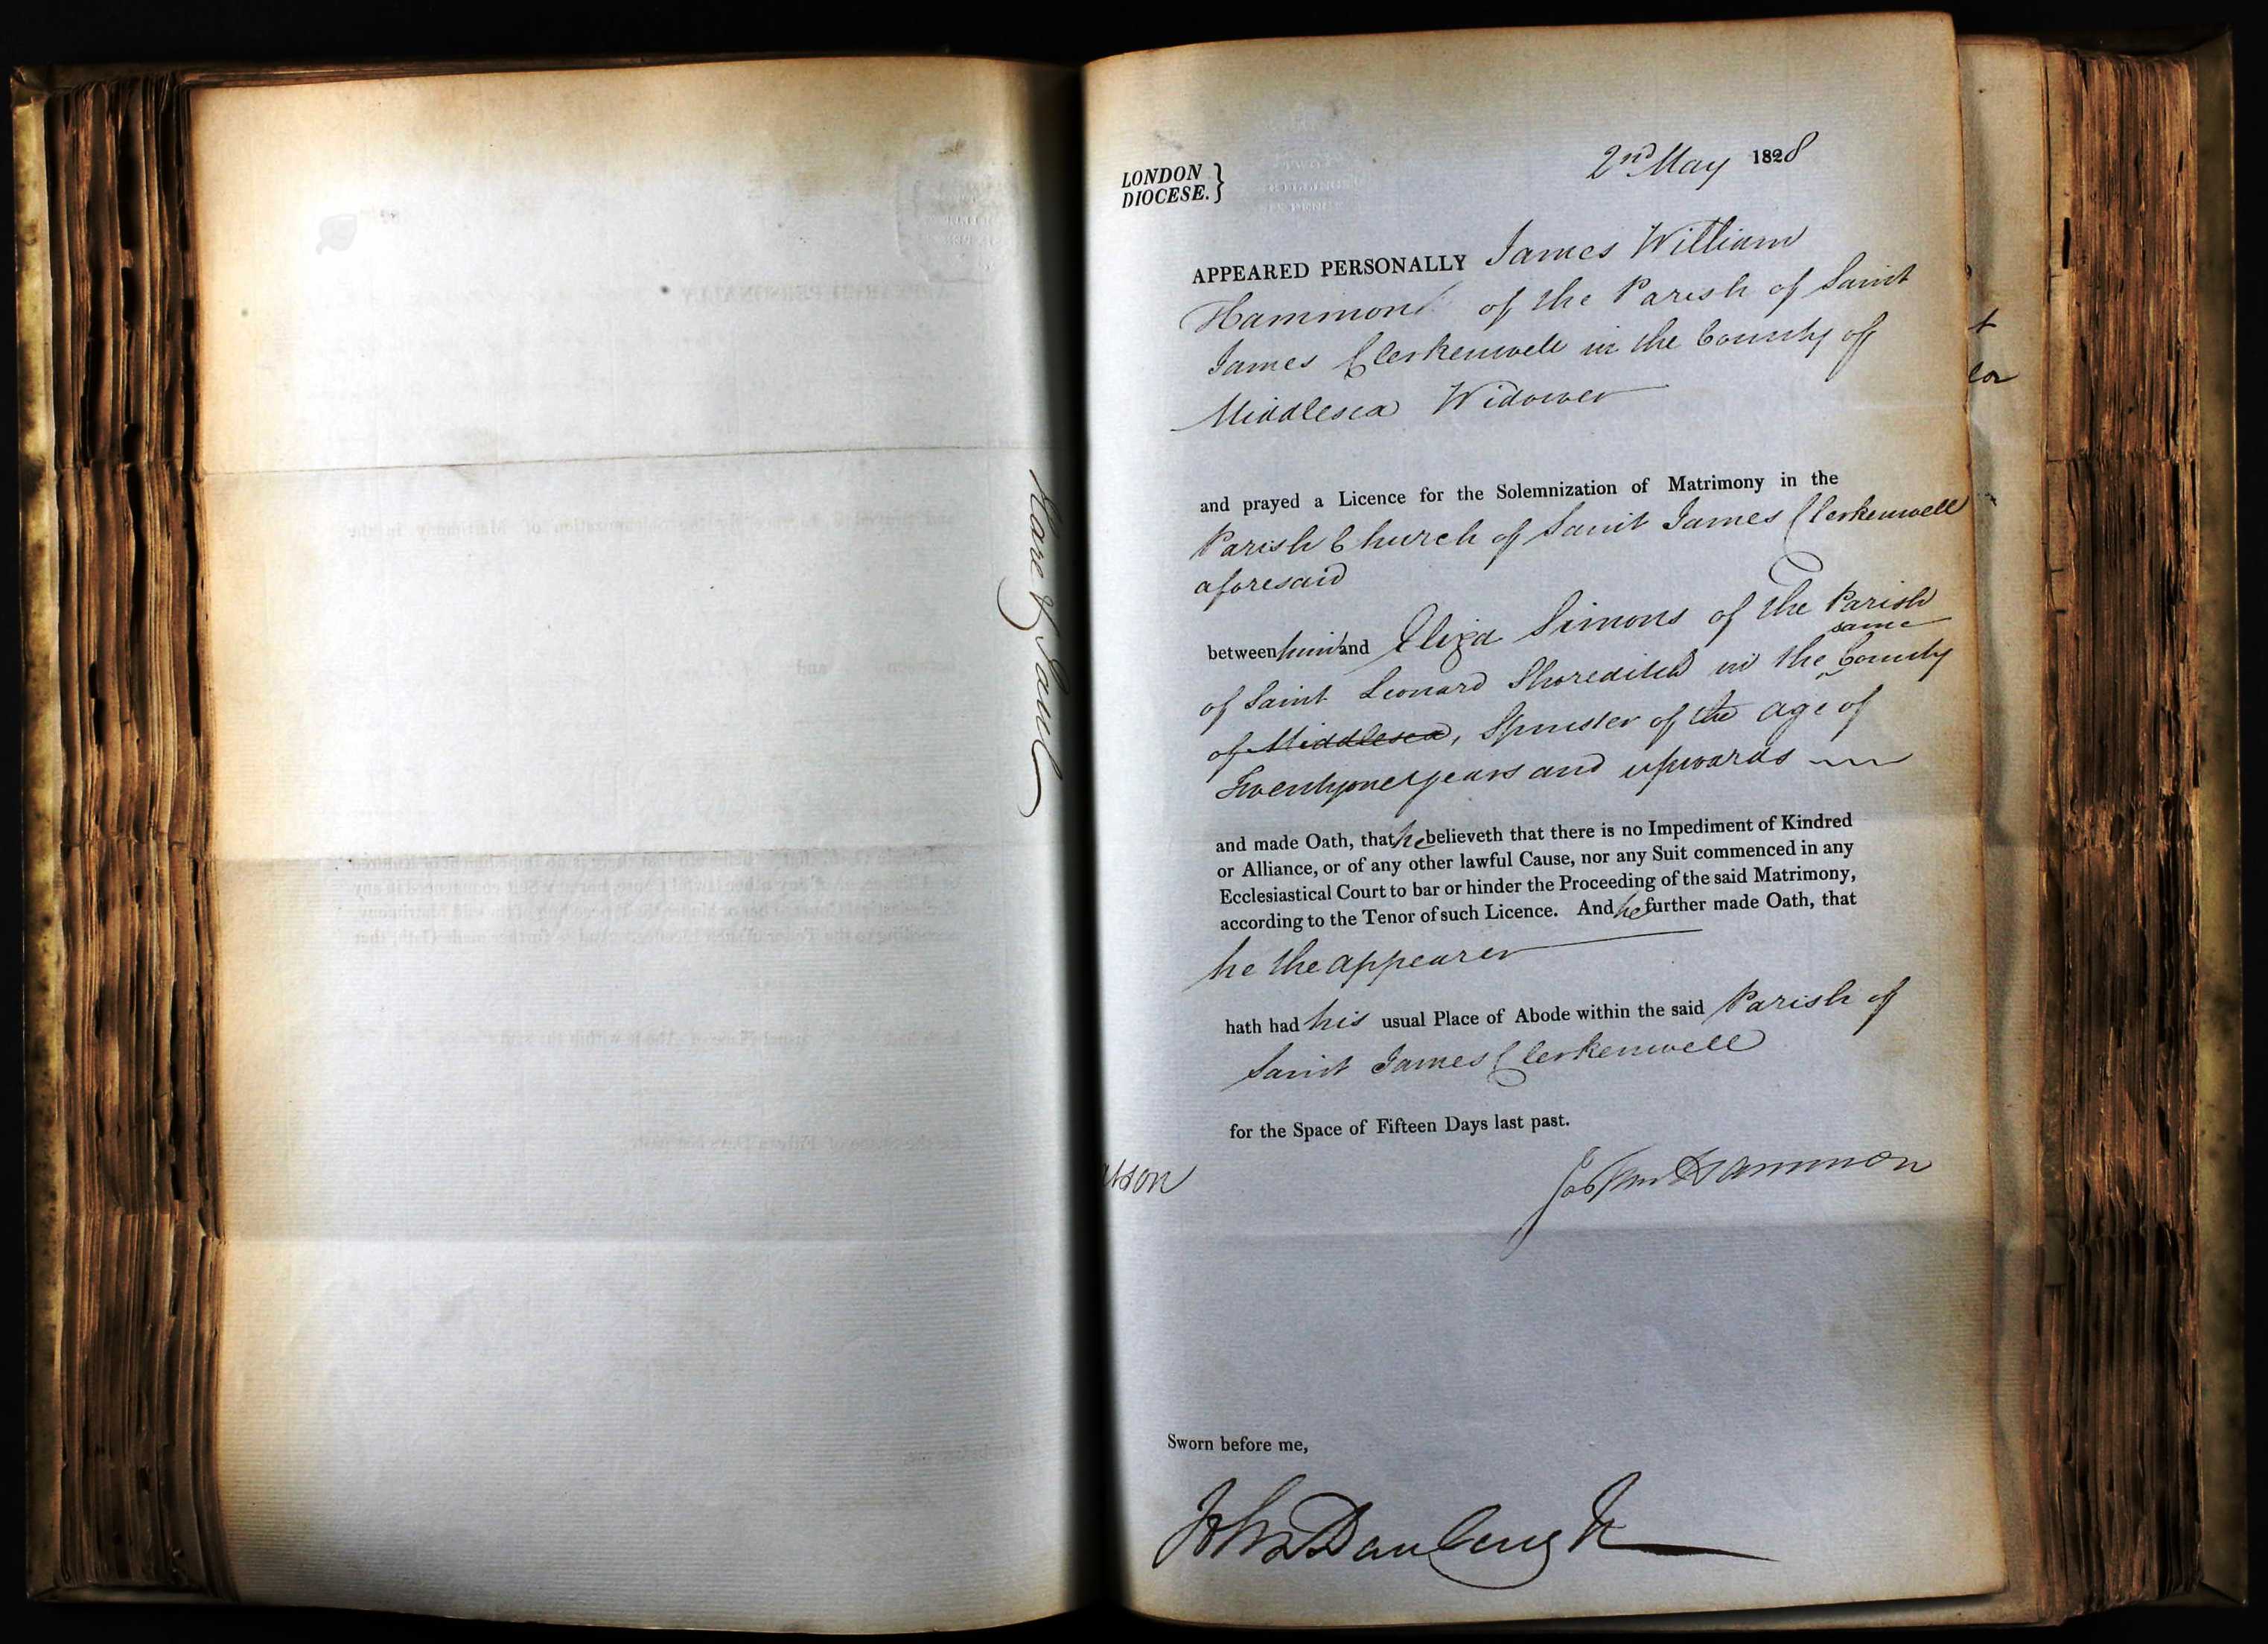 Hare & Saul
LONDON
DIOCESE. }
2nd May 1828
APPEARED PERSONALLY James William
Hammon of the Parish of Saint
James Clerkenwell in the County of
Middlesex Widower
and prayed a Licence for the Solemnization of Matrimony in the
Parish Church of Saint James Clerkenwell
aforesaid
between him and Eliza Simons of the Parish
same
of Saint Leonard Shoreditch in the County
of Middlesex, Spinster of the age of
Twentyone years and upwards
and made Oath, that he believeth that there is no Impediment of Kindred
or Alliance, or of any other lawful Cause, nor any Suit commenced in any
Ecclesiastical Court to bar or hinder the Proceeding of the said Matrimony,
according to the Tenor of such Licence. And he further made Oath, that
he the appearer
hath had his usual Place of Abode within the said Parish of
Saint James Clerkenwell
for the Space of Fifteen Days last past.
Jas Wm Hammon
Sworn before me,